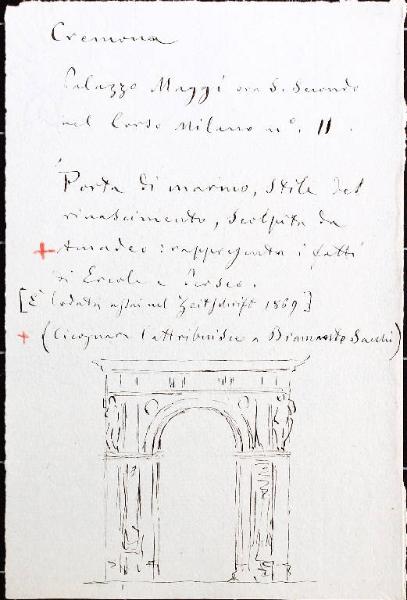 Cremona
Palazzo Maggi ora S. Secondo
nel Corso Milano n°. 11.
Porta di marmo, stile del
rinascimento, scolpita da
Amadeo: rappresenta i fatti
di Ercole e Perseo.
[È lodata assai nel Zeitschrift 1869]
(Cicognara l'attribuisce a Bramante Sacchi)